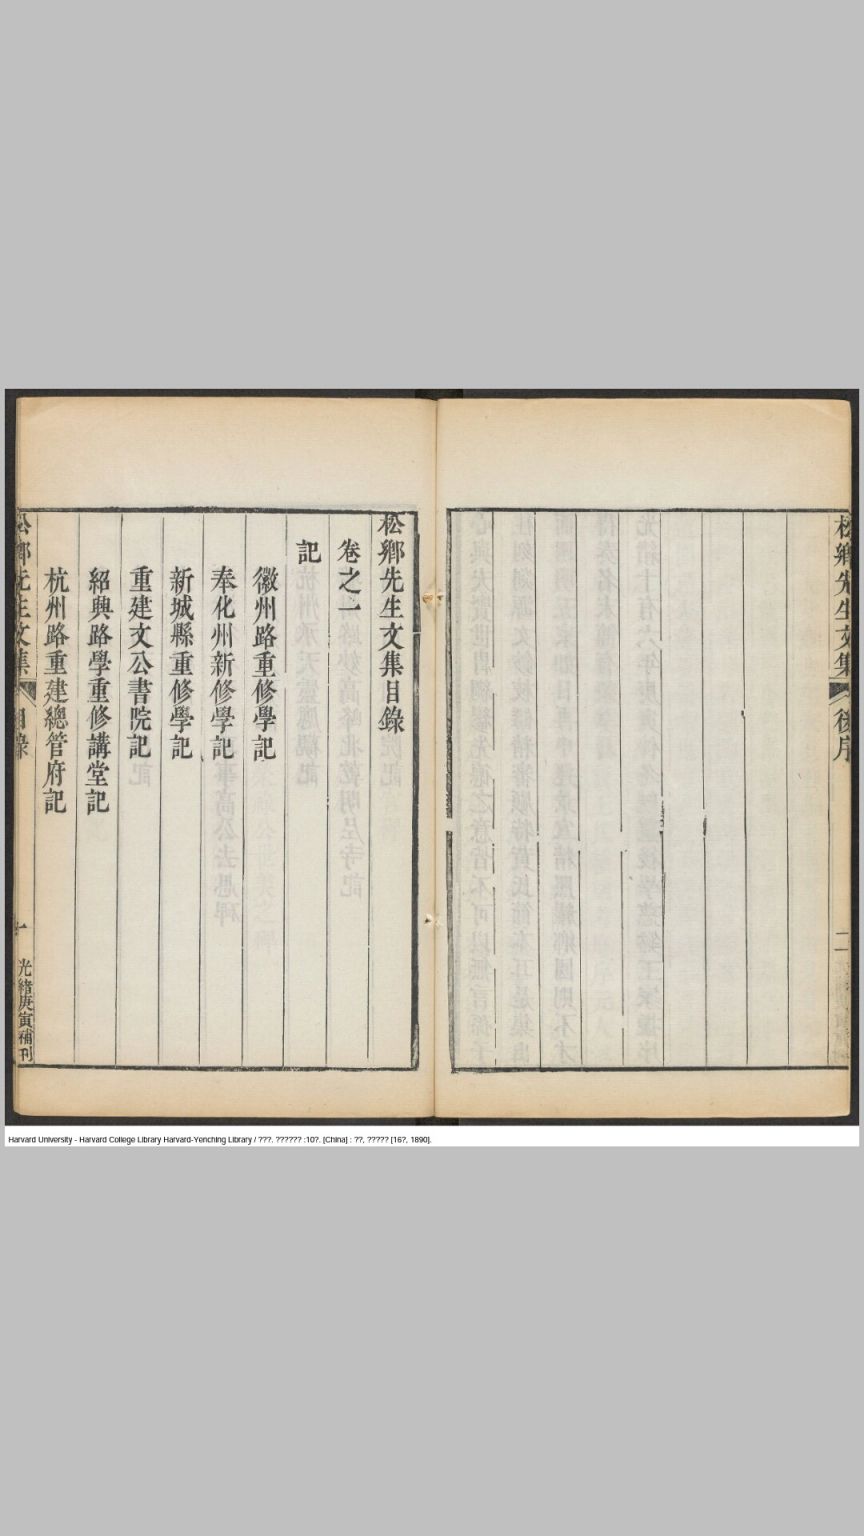 松鄉先生文集
後序
二
松鄉先生文集目錄
卷之一
記
徽州路重修學記
奉化州新修學記
新城縣重修學記
重建文公書院記
紹興路學重修講堂記
杭州路重建總管府記
松鄉先生文集
目錄
一
光緒庚寅補刊
Harvard University - Harvard College Library Harvard-Yenching Library / ???. ?????? :10?. [China] : ??, ????? [16?, 1890].